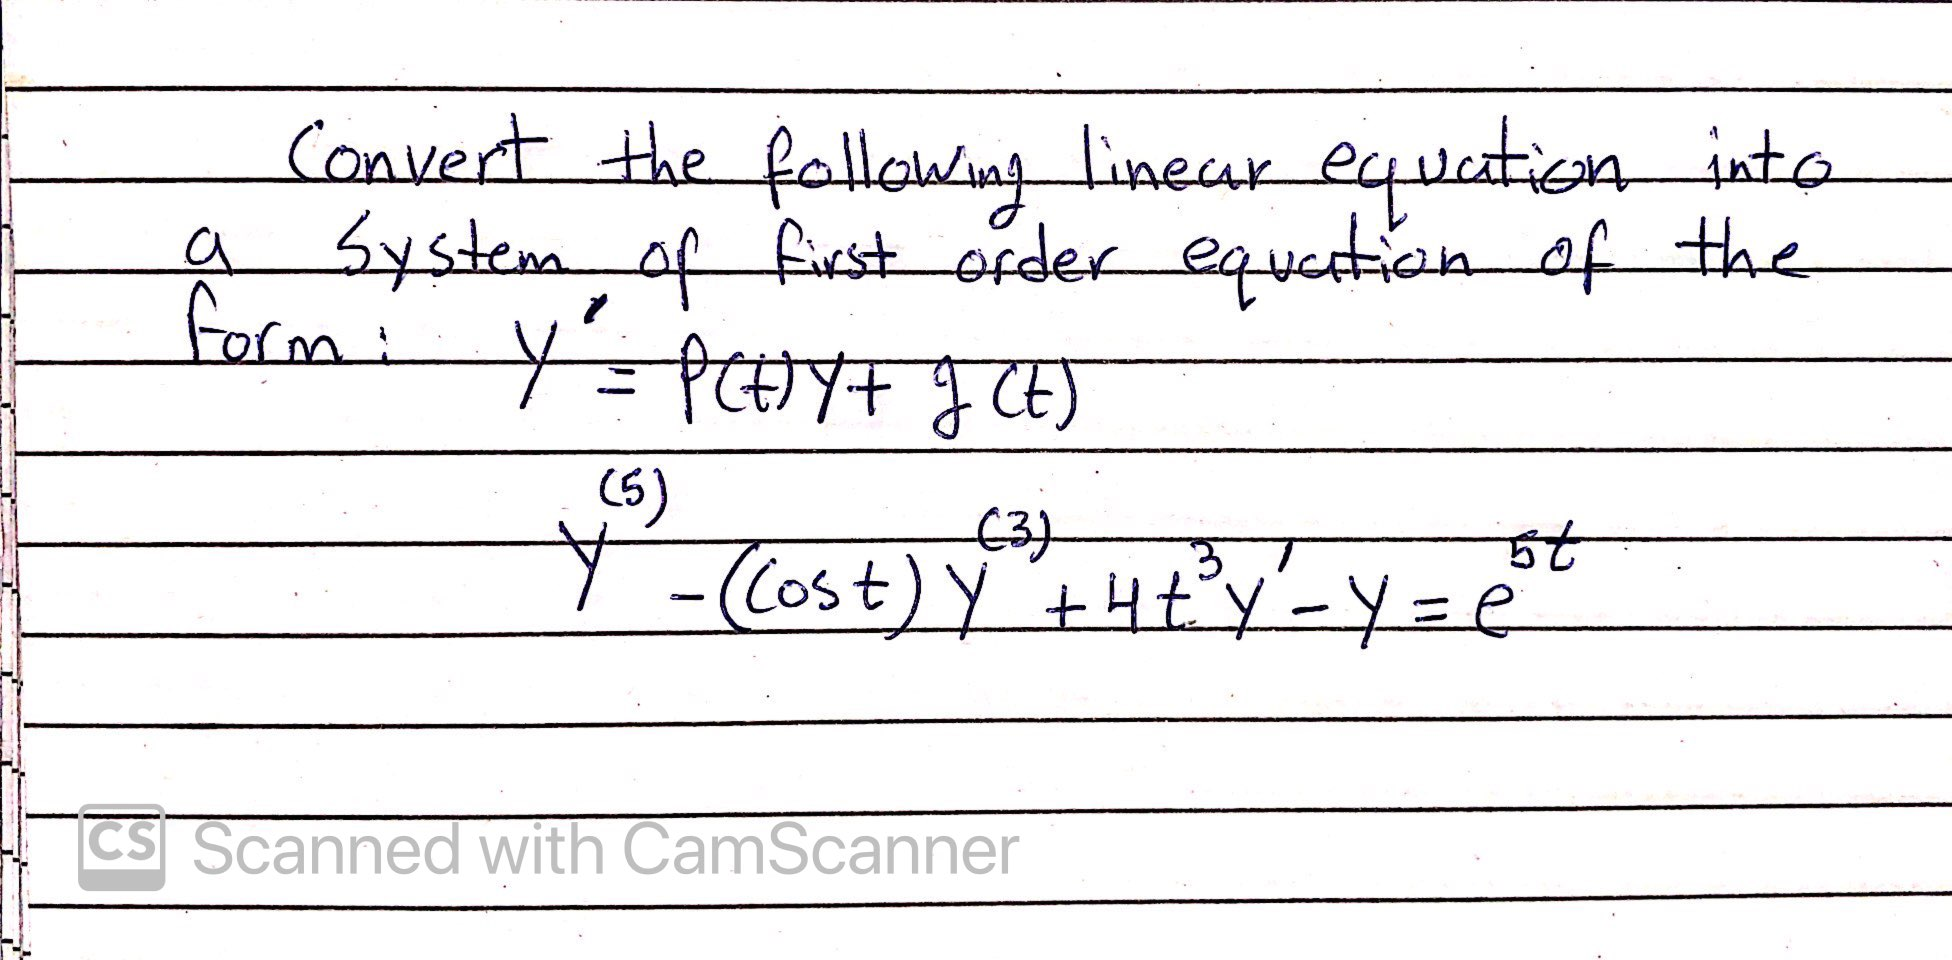 Convert the following linear equation into
a system of first order equation of the
form: y' = P(t)y + g(t)
y⁽⁵⁾ - (cos t) y⁽³⁾ + 4t³y' - y = e⁵ᵗ
CS Scanned with CamScanner